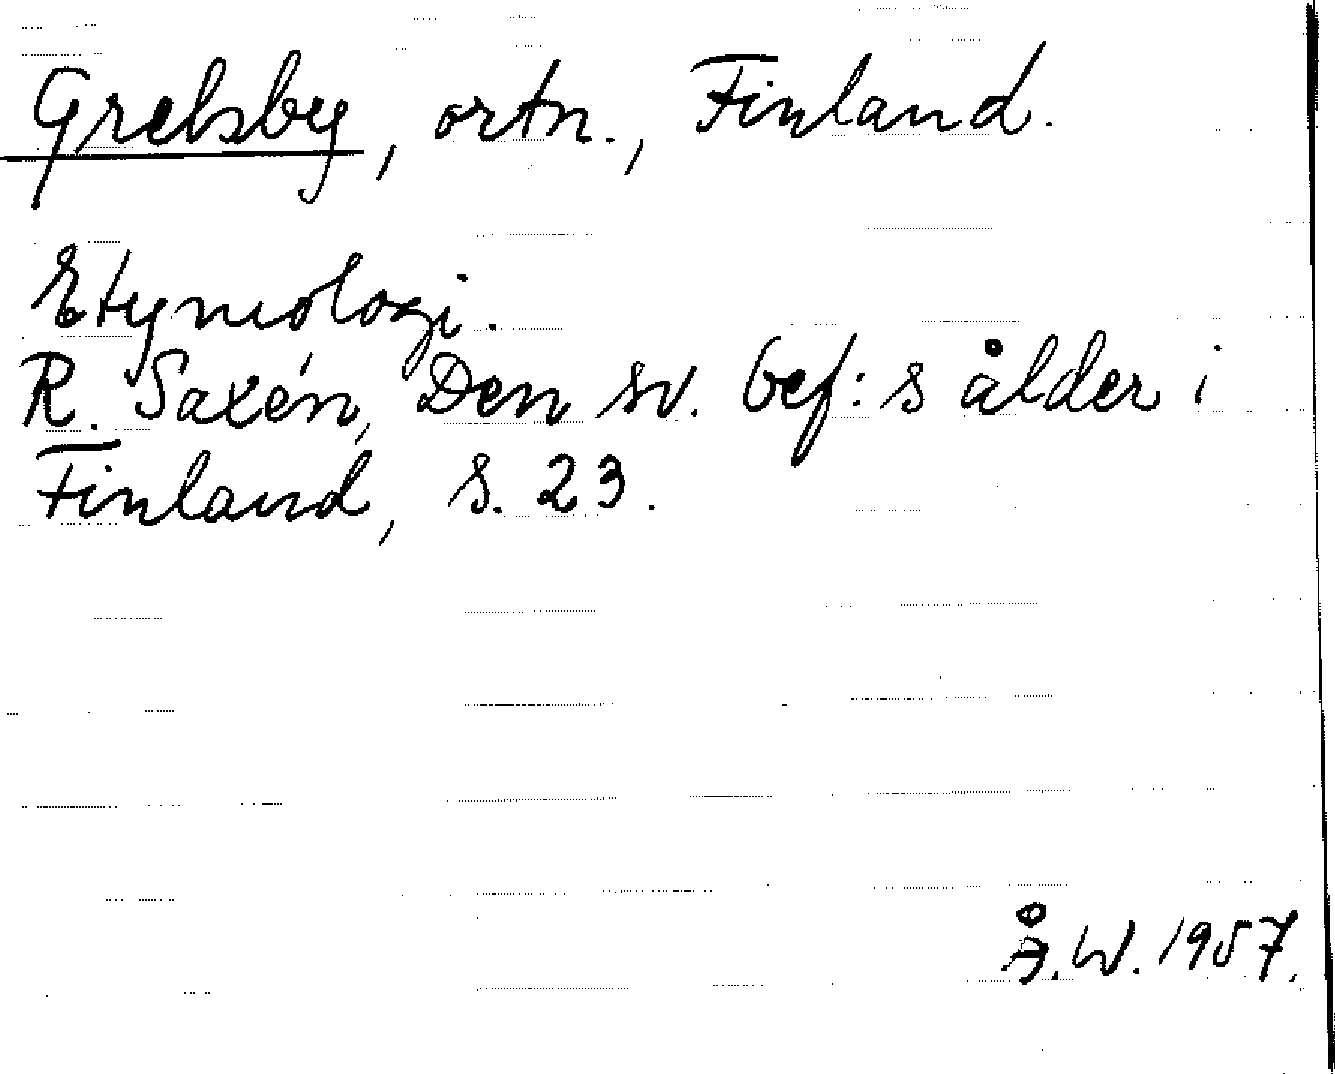 Grelsby, ortn., Finland.
Etymologi.
R. Saxén, Den sv. bef:s ålder i
Finland, s. 23.
Å.W. 1957.